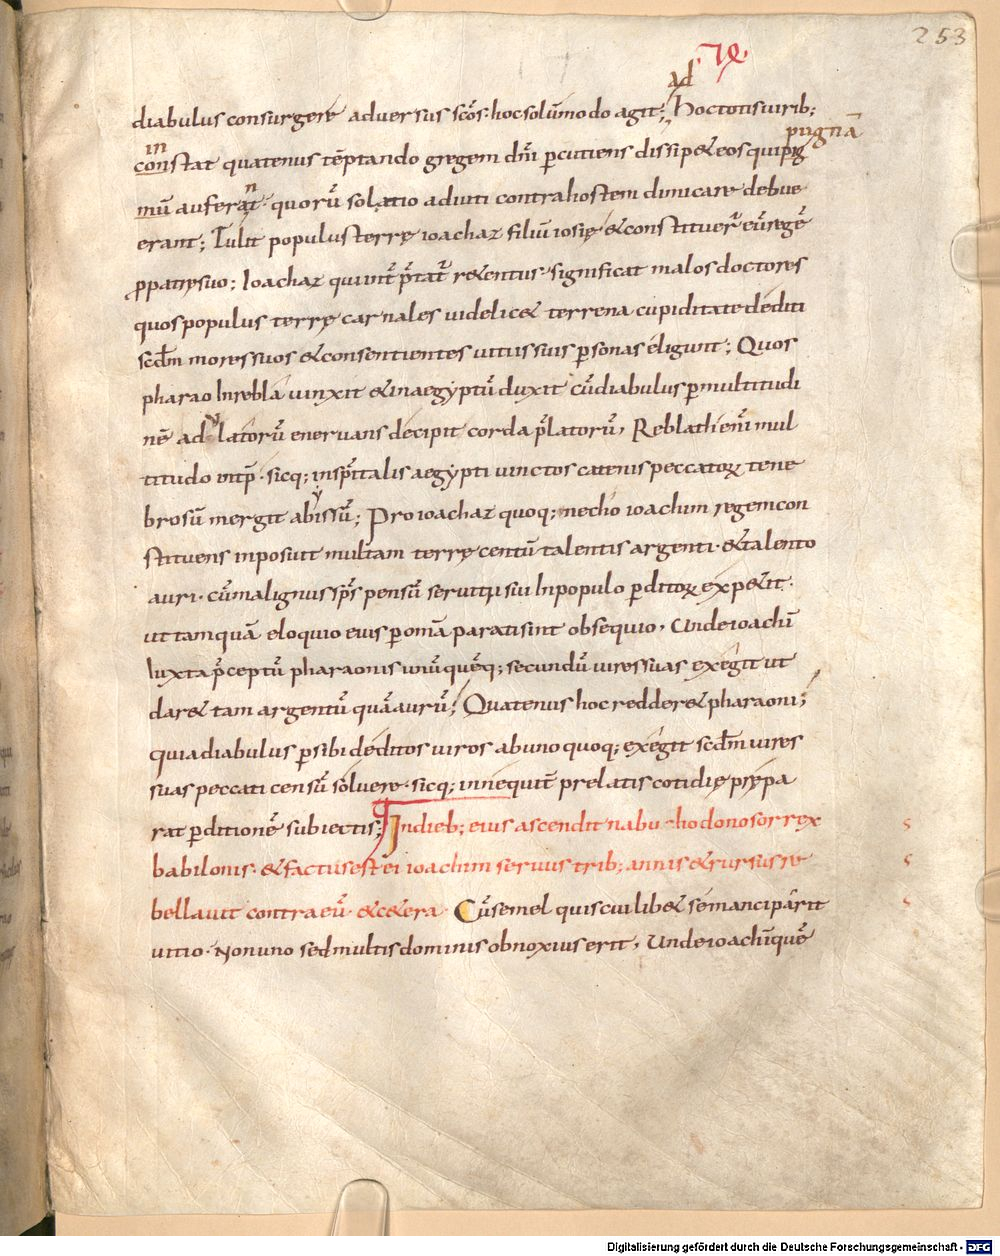 253
ad
diabulus consurgere adversus scōs· hoc solūmodo agit; hoc totis virib;
in pugnā
constat quatenus tēptando gregem dn̄i percutiens dissip& eos qui
mū auferat· quorū solatio adiuti contra hostem dimicare debue
n
erant; Tulit populus terrę ioachaz filiū iosię & constituer̄ eū regē
p patre suo; Ioachaz significat malos doctores
quos populus terrę carnales videlic& terrena cupiditate dediti
scđm mores suos & consentientes vitiis suis personas eligunt; Quos
pharao In rebla vinxit & in aegyptū duxit cū diabulus per multitudi
nē adulatorū enervans decipit corda p̄latorū, Reblath eni mul
titudo intp̄· sicq; in sp̄italis aegypti vinctos catenis peccatorꝝ tene
y
brosū mergit abissū; Pro ioachaz quoq; necho ioachim regem con
stituens inposuit multam terrę centū talentis argenti· & talento
auri· cū malignus sp̄s pensū servitii sui In populo perditorꝝ expetit·
ut tamquā eloquio eius per omā parati sint obsequio, Unde ioachī
Iuxta p̄ceptū pharaonis unūquēq; secundū vires suas exegit ut
dar& tam argentū quā aurū; Quatenus hoc redder& pharaoni;
quia diabulus per sibi deditos viros ab uno quoq; exegit scđm vires
suas peccati censū solvere· sicq; prelatis cotidię prępa
rat perditionē subiectis; Indieb; eius ascendit nabuchodonosor rex
babilonis· & factus est ei ioachim servus trib; annis & rursus re
bellavit contra eū· & c&era· Cū semel quis cuilib& se manciparit
vitio· Non uno sed multis dominis obnoxius erit, Unde ioachī quē
Digitalisierung gefördert durch die Deutsche Forschungsgemeinschaft - DFG